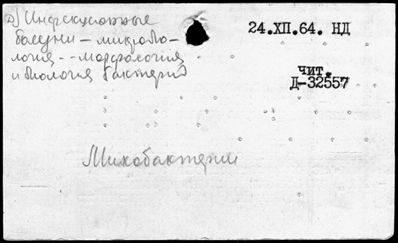 а) Инфекционные
болезни – микробио-
логия – морфология
и биология бактерий
24.XII.64. НД
чит.
Д-32557
Микобактерии